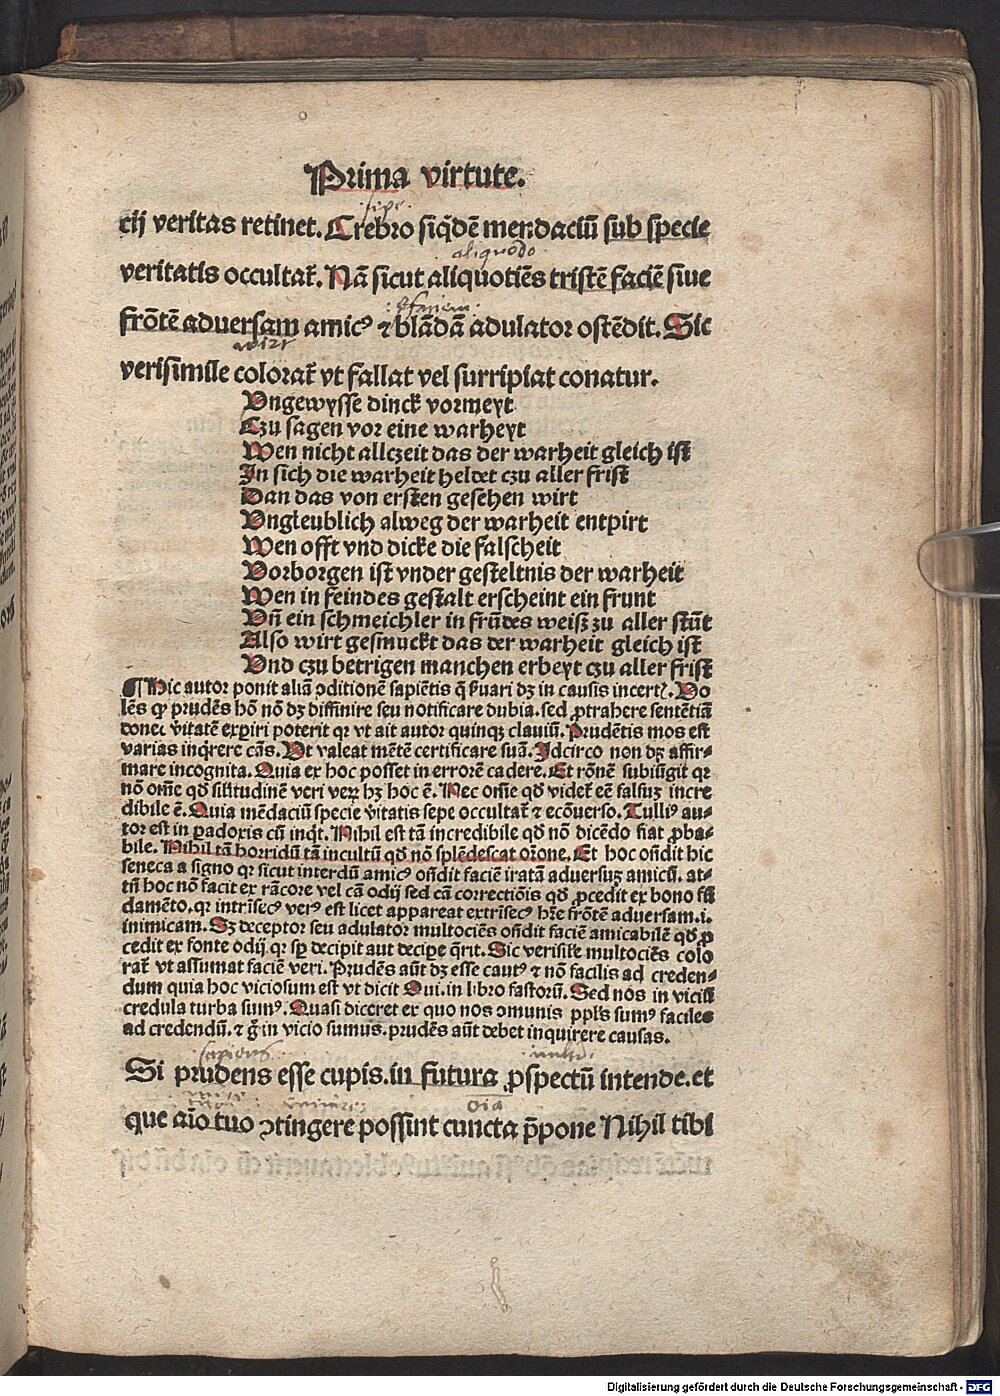 Prima virtute.
sepe.
cij veritas retinet. Crebro siq̇dē mendaciū sub specie
aliquōdo
veritatis occultat̄. Nā sicut aliquotiēs tristē faciē siue
frōtē aduersam amicꝰ ⁊ blādā adulator ostēdit. Sic
verisimile colorat̄ vt fallat vel surripiat conatur.
Vngewysse dinck vormeyt
Czu sagen vor eine warheyt
Wen nicht allczeit das der warheit gleich ist
In sich die warheit heldet czu aller frist
Dan das von ersten gesehen wirt
Vngleublich alweg der warheit entpirt
Wen offt vnd dicke die falscheit
Vorborgen ist vnder gesteltnis der warheit
Wen in feindes gestalt erscheint ein frunt
Vn̄ ein schmeichler in frūdes weisz zu aller stūt
Also wirt gesmuckt das der warheit gleich ist
Vnd czu betrigen manchen erbeyt czu aller frist
¶ Hic autor ponit aliā ꝯditionē sapiētis q̄ ẜuari dꝫ in causis incertꝭ. Vo
lēs ꝙ prudēs hō nō dꝫ diffinire seu notificare dubia. sed ꝓtrahere sententiā
donec v̄itatē exꝑiri poterit qr vt ait autor quinqꝫ clauiū. Prudētis mos est
varias inq̇rere cās. Vt valeat mētē certificare suā. Idcirco non dꝫ affir-
mare incognita. Quia ex hoc posset in errorē cadere. Et rōnē subiūgit qr
nō om̄e qd̄ sil̄itudinē veri veꝝ hꝫ hoc ē. Nec om̄e qd̄ videt̄ eē falsuꝫ incre
dibile ē. Quia mēdaciū specie v̄itatis sepe occultat̄ ⁊ ecōuerso. Tulliꝰ au-
tor est in ꝑadoxis cū inq̇t. Nihil est tā incredibile qd̄ nō dicēdo fiat ꝓba-
bile. Nihil tā horridū tā incultū qd̄ nō splēdescat orōne. Et hoc on̄dit hic
seneca a signo qr sicut interdū amicꝰ on̄dit faciē iratā aduersuꝫ amicū. at-
tn̄ hoc nō facit ex rācore vel cā odij sed cā correctiōis qd̄ ꝓcedit ex bono fū
damēto. qr intrīsecꝰ verꝰ est licet appareat extrīsecꝰ hr̄e frōtē aduersam. i.
inimicam. Sꝫ deceptor seu adulator multociēs on̄dit faciē amicabilē qd̄ ꝓ
cedit ex fonte odij qr sꝑ decipit aut deciꝑe q̄rit. Sic verisil̄e multociēs colo
rat̄ vt assumat faciē veri. Prudēs aūt dꝫ esse cautꝰ ⁊ nō facilis ad creden-
dum quia hoc viciosum est vt dicit Oui. in libro fastorū. Sed nos in viciū
credula turba sumꝰ. Quasi diceret ex quo nos ꝯmunis ppl̄s sumꝰ faciles
ad credendū. ⁊ g̊ in vicio sumus. prudēs aūt debet inquirere causas.
sapiens
Si prudens esse cupis. in futura ꝓspectū intende. et
oīa
que aīo tuo ꝯtingere possint cuncta p̄pone Nihil tibi
Digitalisierung gefördert durch die Deutsche Forschungsgemeinschaft - DFG